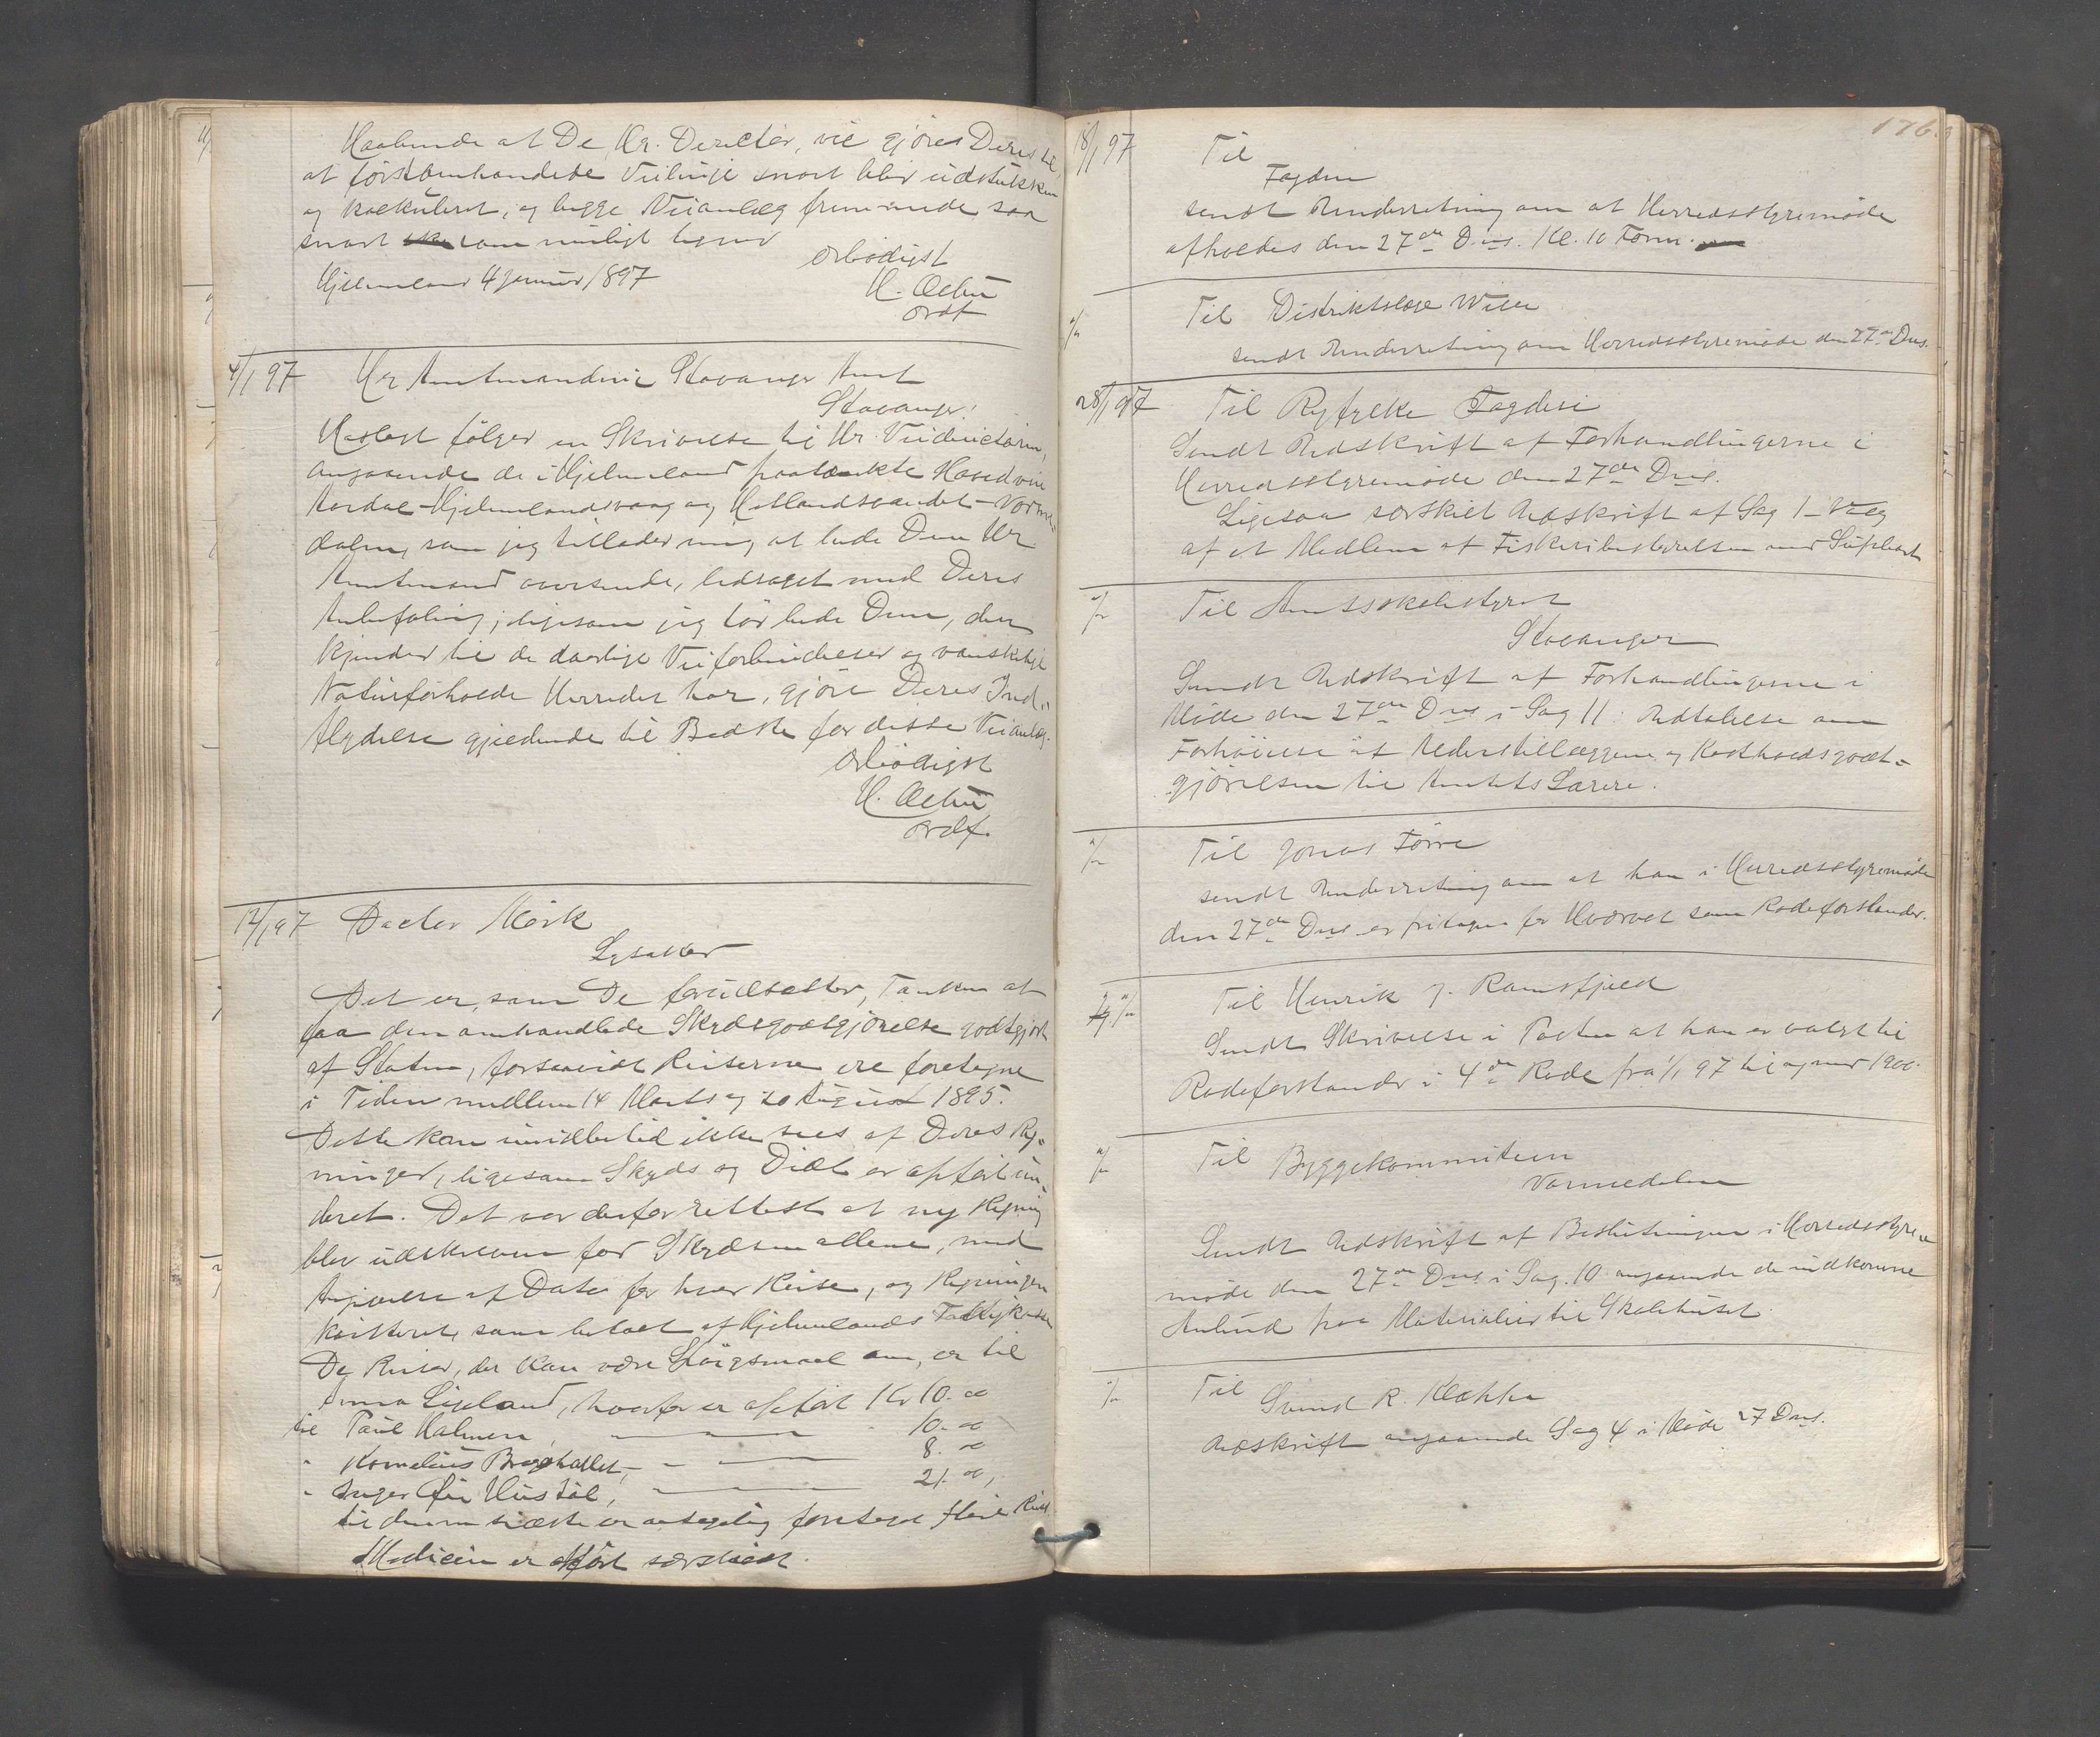 Haabende at De, Hr. Director, vil gjøre Deres til,
at førstomhandlede Veilinje snart blir udstukken
og kalkuleret, og begge Veianlæg fremmede saa
snart som muligt
Hjelmeland 4 Januar 1897
Ærbødigst
Ordf
4/1 97 Hr Amtmanden i Stavanger Amt
Stavanger!
Hoslagt følger en Skrivelse til Hr. Veidirectøren,
angaaende de i Hjelmeland paatænkte Hovedveie
Aardal-Hjelmelandsvaag og Hetlandsvandet-Vorme-
dalen, som jeg tillader mig at bede Dem Hr
Amtmand oversende, ledsaget med Deres
Anbefaling; ligesom jeg tør bede Dem, der
kjender til de daarlige Veiforbindelser og vanskelige
Naturforholde Herredet har, gjøre Deres Ind-
flydelse gjældende til Bedste for disse Veianlæg.
Ærbødigst
Ordf.
12/1 97 Doctor Mörk
Lysaker
Det er, som De forudsætter, Tanken at
faa den omhandlede Skydsgodtgjørelse godtgjort
af Staten, forsaavidt Reiserne ere foretagne
i Tiden mellem 14 Marts og 20 August 1895.
Dette kan imidlertid ikke sees af Deres Reg-
ninger, ligesom Skyds og Diæt er opført
Det var derfor rettest at ny Regning
blev udskreven for Skydsen allene, med
Angivelse af Dato for hver Reise, og Regningen
kvitteret, som betalt af Hjelmelands Fattigkasse
De Reiser, der kan være Spørgsmaal om, er til
Anna Ligeland, hvorfor er opført Kr 10.00
til Paul Halmen, — 10.00
" Kornelius — 8.00
" Inger — 21.00,
til denne sidste er antagelig foretaget flere Reiser
Medicin er opført særskilt.
176.
18/1 97 Til
Fogden
sendt Underretning om at Herredsstyremøde
afholdes den 27de Dns. Kl. 10 Form.
"/" Til Distriktslæge Wille
sendt Underretning om Herredsstyremøde den 27de Dns.
28/1 97 Til Ryfylke Fogderi
Sendt Udskrift af Forhandlingerne i
Herredsstyremøde den 27de Dns.
Ligesaa særskilt Udskrift af Sag 1 - Valg
af et Medlem af Fiskeribestyrelsen med Supleant
"/" Til Amtsskolestyret
Stavanger
Sendt Udskrift af Forhandlingerne i
Møde den 27de Dns i Sag 11: Udtalelse om
Forhöielse af Alderstillæggene og Kostholdsgodt-
gjörelsen til Amtets Lærere.
"/" Til Jonas Førre
sendt Underretning om at han i Herredsstyremøde
den 27de Dns er fritagen for Hvervet som Rodeforstander.
"/" Til Henrik J. Ramsfjeld
Sendt Skrivelse i Posten at han er valgt til
Rodeforstander i 4de Rode fra 1/1 97 til og med 1900.
"/" Til Byggekommiteen
Vormedalen
Sendt Udskrift af Beslutningen i Herredsstyre-
møde den 27de Dns i Sag. 10 angaaende de indkomne
Anbud paa Materialier til Skolehuset
"/" Til
Svend R. Kleppa
Udskrift angaaende Sag 4 i Møde 27 Dns.